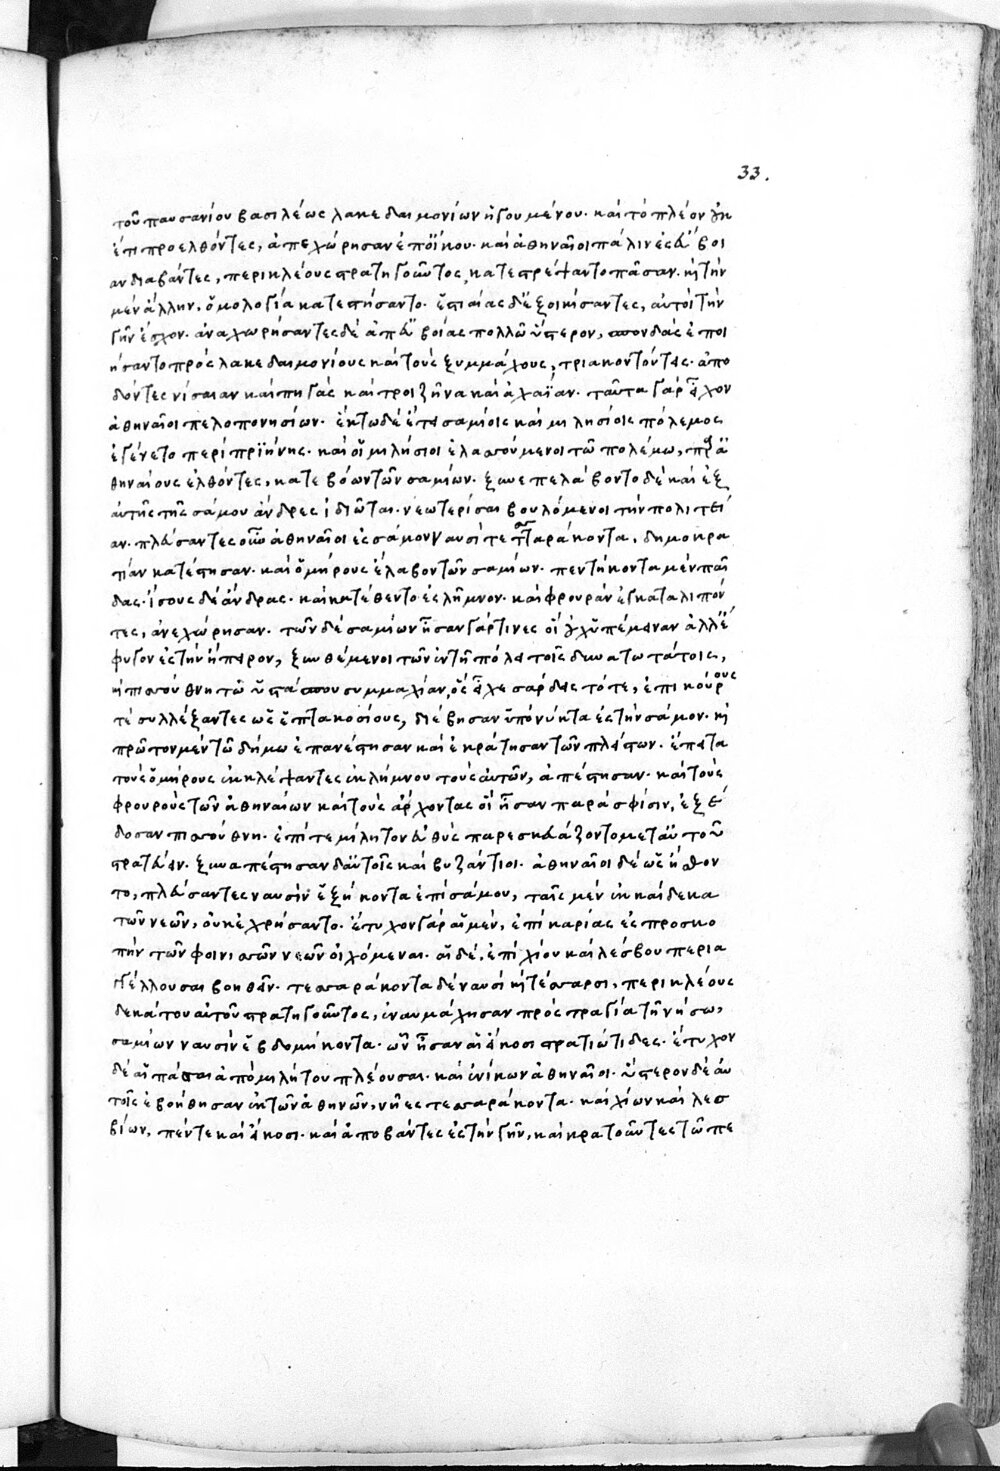 33.
τοῦ παυσανίου βασιλέως λακεδαιμονίων ἡγουμένου· καὶ τὸ πλέον οὐκ
ἔτι προελθόντες, ἀπεχώρησαν ἐπ' οἴκου· καὶ ἀθηναῖοι πάλιν ἐς εὔβοι
αν διαβάντες, περικλέους στρατηγοῦντος, κατεστρέψαντο πᾶσαν· κ τὴν
μὲν ἄλλην, ὁμολογία κατεστήσαντο· ἑστιαίας δὲ ἐξοικήσαντες, αὐτοὶ τὴν
γῆν ἔσχον· ἀναχωρήσαντες δὲ ἀπ' εὐβοίας πολλῶ ὕστερον, σπονδὰς ἐποι
ήσαντο πρὸς λακεδαιμονίους καὶ τοὺς ξυμμάχους, τριακοντούτεις· ἀπο
δόντες νίσαιαν καὶ πηγὰς καὶ τροιζῆνα καὶ ἀχαΐαν· ταῦτα γὰρ εἶχον
ἀθηναῖοι πελοπονησίων· ἕκτω δὲ ἔτει σαμίοις καὶ μιλησίοις πόλεμος
ἐγένετο περὶ πριήνης· καὶ οἱ μιλήσιοι ἐλασσούμενοι τῶ πολέμω, πρ ἀ
θηναίους ἐλθόντες, κατεβόων τῶν σαμίων· ξυνεπελάβοντο δὲ καὶ ἐξ
αὐτῆς τῆς σάμου ἄνδρες ἰδιῶται· νεωτερίσαι βουλόμενοι τὴν πολιτεί
αν· πλεύσαντες οὖν ἀθηναῖοι ἐς σάμον ναυσὶ τεσσαράκοντα, δημοκρα
τίαν κατέστησαν· καὶ ὁμήρους ἔλαβον τῶν σαμίων· πεντήκοντα μὲν παῖ
δας· ἴσους δὲ ἄνδρας· καὶ κατέθεντο ἐς λῆμνον· καὶ φρουρὰν ἐγκαταλιπόν
τες, ἀνεχώρησαν· τῶν δὲ σαμίων ἦσαν γάρ τινες οἳ οὐχ ὑπέμειναν ἀλλ' ἔ
φυγον ἐς τὴν ἤπειρον, ξυνθέμενοι τῶν ἐν τῆ πόλει τοῖς δυνατωτάτοις,
κ πισσούθνη τῶ ὑστάσπου συμμαχίαν, ὃς εἶχε σάρδεις τότε, ἐπικούρους
τὲ συλλέξαντες ὡς ἑπτακοσίους, διέβησαν ὑπὸ νύκτα ἐς τὴν σάμον· κ
πρῶτον μὲν τῶ δήμω ἐπανέστησαν καὶ ἐκράτησαν τῶν πλείστων· ἔπειτα
τοὺς ὁμήρους ἐκκλέψαντες ἐκ λήμνου τοὺς αὑτῶν, ἀπέστησαν· καὶ τοὺς
φρουροὺς τῶν ἀθηναίων καὶ τοὺς ἄρχοντας οἳ ἦσαν παρὰ σφίσιν, ἐξέ
δοσαν πισσούθνη· ἐπί τε μίλητον εὐθὺς παρεσκευάζοντο μεταῢ τοῦ
στρατεύειν· ξυναπέστησαν δ' αὐτοῖς καὶ βυζάντιοι· ἀθηναῖοι δὲ ὡς ἤσθον
το, πλεύσαντες ναυσὶν ἑξήκοντα ἐπὶ σάμον, ταῖς μὲν ἑκκαίδεκα
τῶν νεῶν, οὐκ ἐχρήσαντο· ἔτυχον γὰρ αἱ μὲν, ἐπὶ καρίας ἐς προσκο
πὴν τῶν φοινισσῶν νεῶν οἰχόμεναι· αἱ δὲ, ἐπὶ χίου καὶ λέσβου περια
γγέλλουσαι βοηθεῖν· τεσσαράκοντα δὲ ναυσὶ κ τέσσαρσι, περικλέους
δεκάτου αὐτοῦ στρατηγοῦντος, ἐναυμάχησαν πρὸς τραγία τῆ νήσω,
σαμίων ναυσὶν ἑβδομήκοντα· ὧν ἦσαν αἱ εἴκοσι στρατιώτιδες· ἔτυχον
δὲ αἱ πᾶσαι ἀπὸ μιλήτου πλέουσαι· καὶ ἐνίκων ἀθηναῖοι· ὕστερον δὲ αὐ
τοῖς ἐβοήθησαν ἐκ τῶν ἀθηνῶν, νῆες τεσσαράκοντα· καὶ χίων καὶ λεσ
βίων, πέντε καὶ εἴκοσι· καὶ ἀποβάντες ἐς τὴν γῆν, καὶ κρατοῦντες τῶ πε